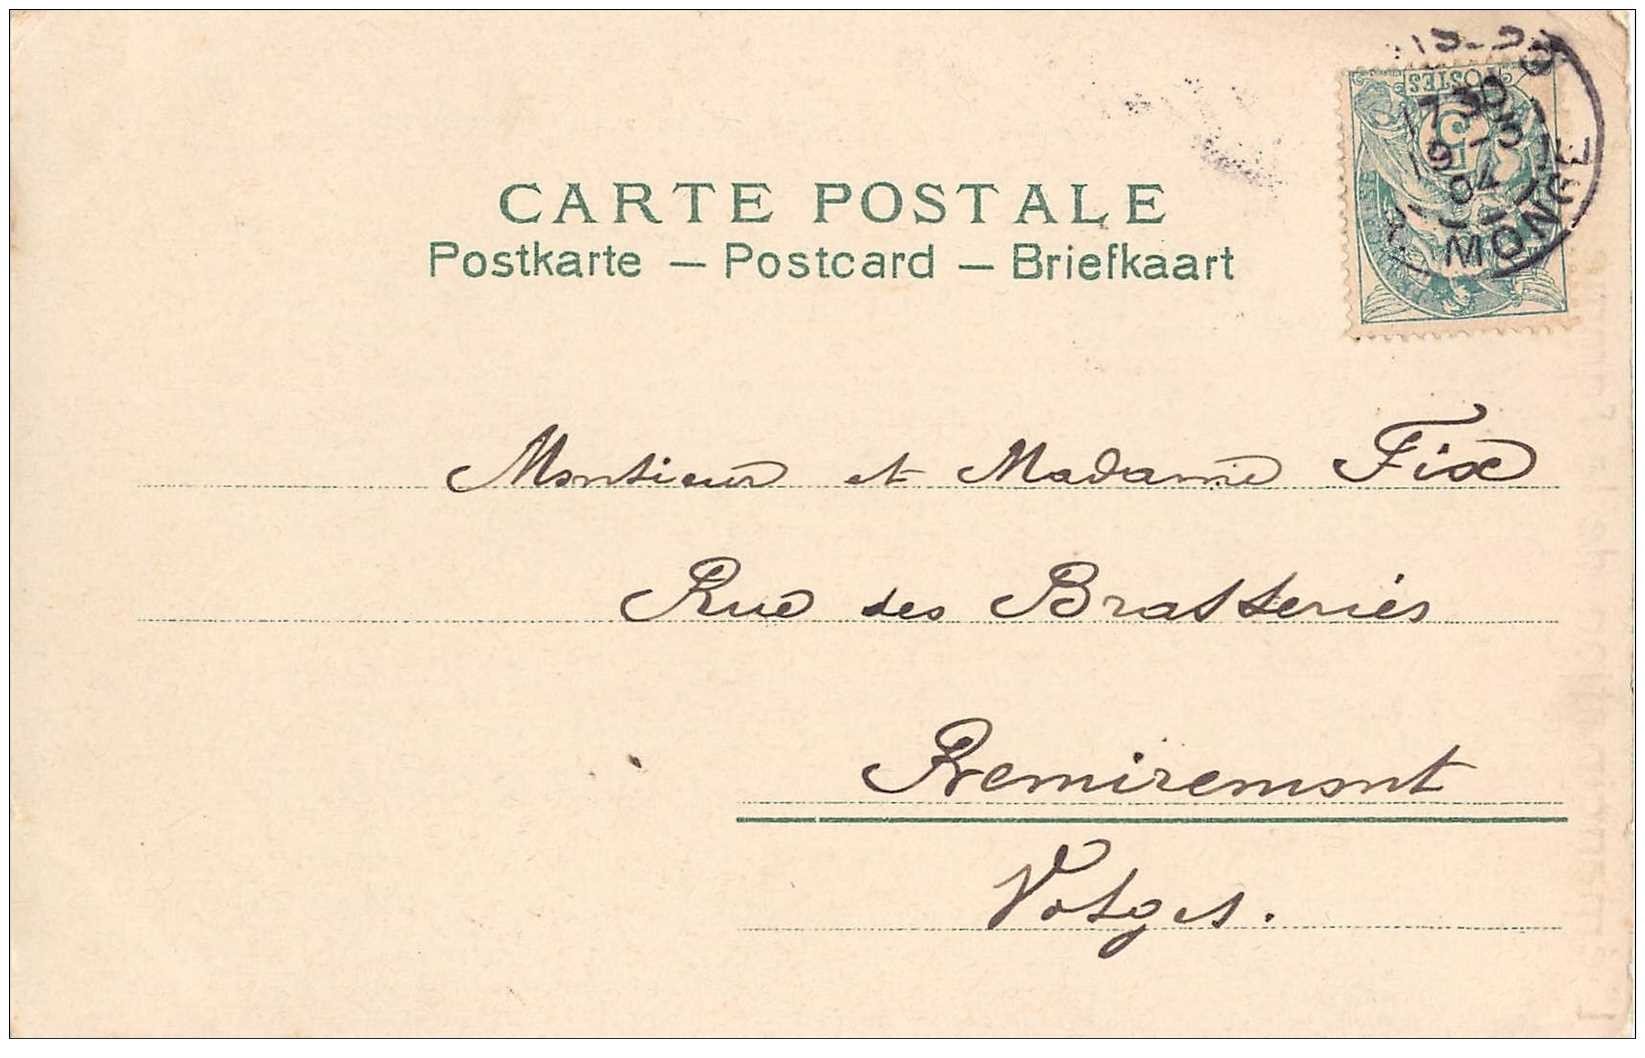 CARTE POSTALE
Postkarte — Postcard — Briefkaart
POSTES
5
MONGE
Monsieur et Madame Fix
Rue des Brasseries
Remiremont
Vosges.